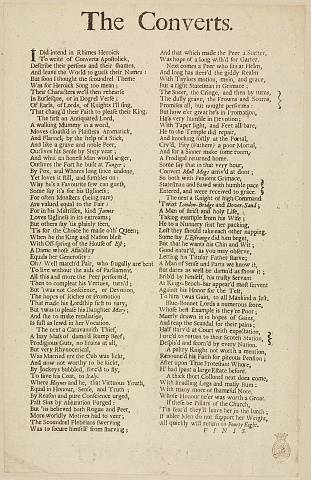 The Converts.
I Did intend in Rhimes Heroick
To write of Converts Apostolick,
Describe their persons and their shames,
And leave the World to guess their Names:
But soon I thought the scoundrel Theme
Was for Heroick Song too mean;
Their Characters we'll then rehearse
In Burlesque, or in Dogrel Verse;
Of Earls, of Lords, of Knights I'll sing,
That chang'd their Faith to please their King.
The first an Antiquated Lord,
A walking Mummy in a word,
Moves cloath'd in Plaisters Aromatick,
And Flannel, by the help of a Stick,
And like a grave and noble Peer,
Outlives his Sense by Sixty year;
And what an honest Man would anger,
Outlives the Fort he built at Tangier;
By Pox, and Whores long since undone,
Yet loves it still, and fumbles on:
Why he's a Favourite few can guess,
Some say it's for his Ugliness;
For often Monsters (being rare)
Are valued equal to the Fair;
For in his Mistresses, kind James
Loves Ugliness in its extreams;
But others say its plainly seen,
'Tis for the Choice he made oth' Queen;
When he the King and Nation blest
With Off-spring of the House of Est;
A Dame whose Affability
Equals her Generosity:
Oh! Well match'd Pair, who frugally are bent
To live without the aids of Parliament.
All this and more the Peer perform'd,
Then to compleat his Vertues, turn'd;
But 'twas not Conscience, or Devotion,
The hopes of Riches or Promotion
That made his Lordship first to vary,
But 'twas to please his Daughter Mary;
And she to make retaliation,
Is full as lewd in her Vocation.
The next a Caravanish Thief,
A lazy Mass of damn'd Rump Beef;
Prodigious Guts, no Brains at all,
But very Rhinocerical
Was Married ere the Cub was lickt,
And now not worthy to be kickt,
By Jockeys bubbled, forc'd to fly,
To save his Coat, to Italy.
Where Haynes and he, that Virtuous Youth,
Equal in Honour, Sense, and Truth;
By Reason and pure Conscience urged,
Past Sins by Abjuration Purged:
But 'tis believed both Rogue and Peer,
More worldly Motives had to veer;
The Scoundrel Plebeian swerving
Was to secure himself from starving;
And that which made the Peer a Starter,
Was hopes of a long wish'd for Garter.
Next comes a Peer who sits at Helm,
And long has steer'd the giddy Realm
With Taylors motion, mein, and grace,
But a right Statesman in Grimace;
The Sneer, the Cringe, and then by turns,
The dully grave, the Frowns and Scorns,
Promises all, but nought performs;
But howe'er great he's in Promotion,
He's very humble in Devotion;
With Taper light, and Feet all bare,
He to the Temple did repair,
And knocking softly at the Portal,
Cry'd, Pity (Fathers) a poor Mortal,
And for a Sinner make some room,
A Prodigal returned home.
Some say that in that very hour,
Convert Moll Megs arriv'd at door;
So both with Penitent Grimace,
Statesman and Bawd with humble pace
Entered, and were received to grace.
The next a Knight of high Command
'Twixt London-Bridge and Dover-Sand;
A Man of strict and holy Life,
Taking example from his Wife;
He to a Nunnery sent her packing,
Lest they should take each other napping.
Some say L'Estrange did him beget,
But that he wants his Chin and Wit;
Good natur'd, as you may observe,
Letting his Titular Father starve;
A Man of Sense and Parts we know it,
But dares as well be damn'd as show it;
Brib'd by himself, his trusty Servant
At Kings-Bench-bar appear'd most fervent
Against his Honour for the Test,
To him 'twas Gain, to all Mankind a Jest.
Blue-Bonnet Lords a numerous store,
Whose best Example is they're Poor;
Meerly drawn in in hopes of Gains,
And reap the Scandal for their pains;
Half starv'd at Court with expectation,
Forc'd to return to their Scotch Station,
Despis'd and scorn'd by every Nation.
A paltry Knight not worth a mention,
Renounc'd his Faith for piteous Pension;
After upon True Protestant Whore,
H' had spent a large Estate before.
A thick short Collonel next does come,
With stradling Legs and massy Bum;
With many more of shameful Note,
Whose Honour ne'er was worth a Groat.
If these be Pillars of the Church,
'Tis fear'd they'll leave her in the lurch;
If abler Men do not support her Weight,
All quickly will return to Forty Eight.
FINIS.